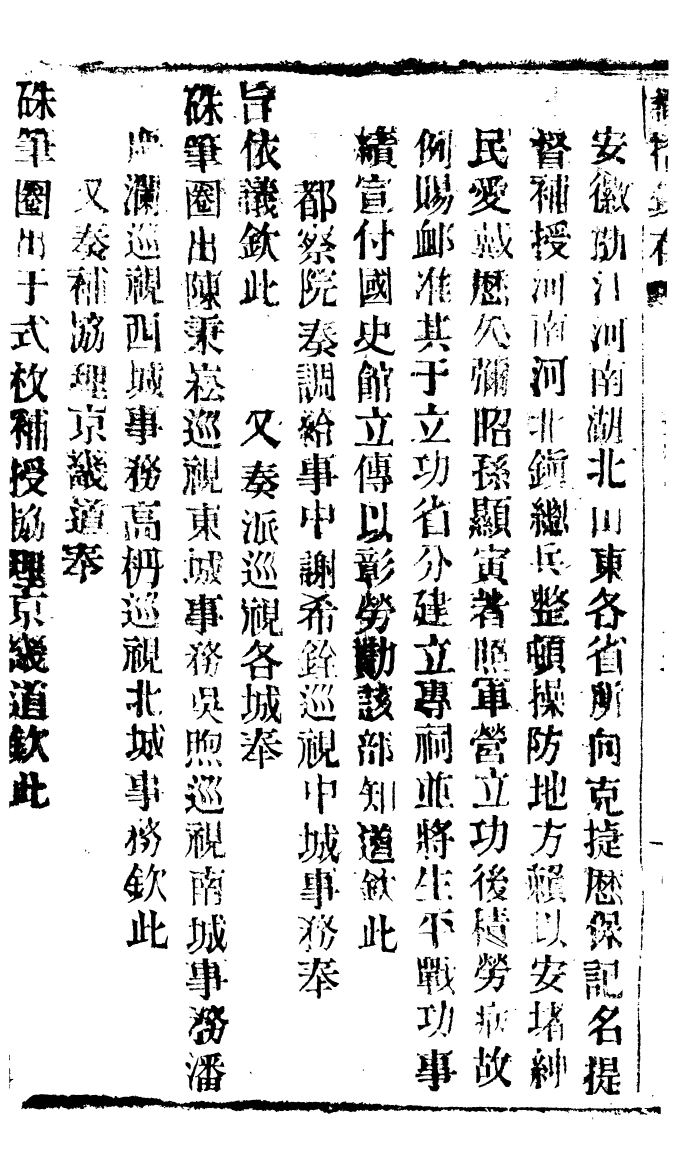 安徽勦江河南湖北山東各省所向克捷歷保記名提
督補授河南河北鎮總兵整頓操防地方賴以安堵紳
民愛戴歷久彌昭孫顯寅著照軍營立功後積勞病故
例賜卹准其于立功省分建立專祠並將生平戰功事
績宣付國史館立傳以彰勞勩該部知道欽此
都察院奏調給事中謝希銓巡視中城事務奉
旨依議欽此 又奏派巡視各城奉
硃筆圈出陳秉崧巡視東城事務吳煦巡視南城事務潘
慶瀾巡視西城事務高枬巡視北城事務欽此
又奏補協理京畿道奉
硃筆圈出于式枚補授協理京畿道欽此